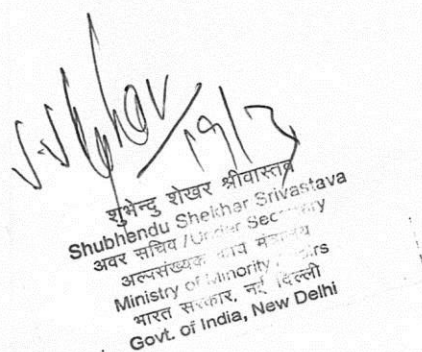 19/3
शुभेन्दु शेखर श्रीवास्तव
Shubhendu Shekhar Srivastava
अवर सचिव / Under Secretary
अल्पसंख्यक कार्य मंत्रालय
Ministry of Minority Affairs
भारत सरकार, नई दिल्ली
Govt. of India, New Delhi